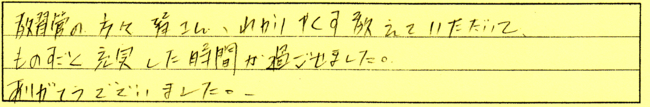 教習官の方々皆さん、わかりやすく教えていただいて、
ものすごく充実した時間が過ごせました。
ありがとうございました。